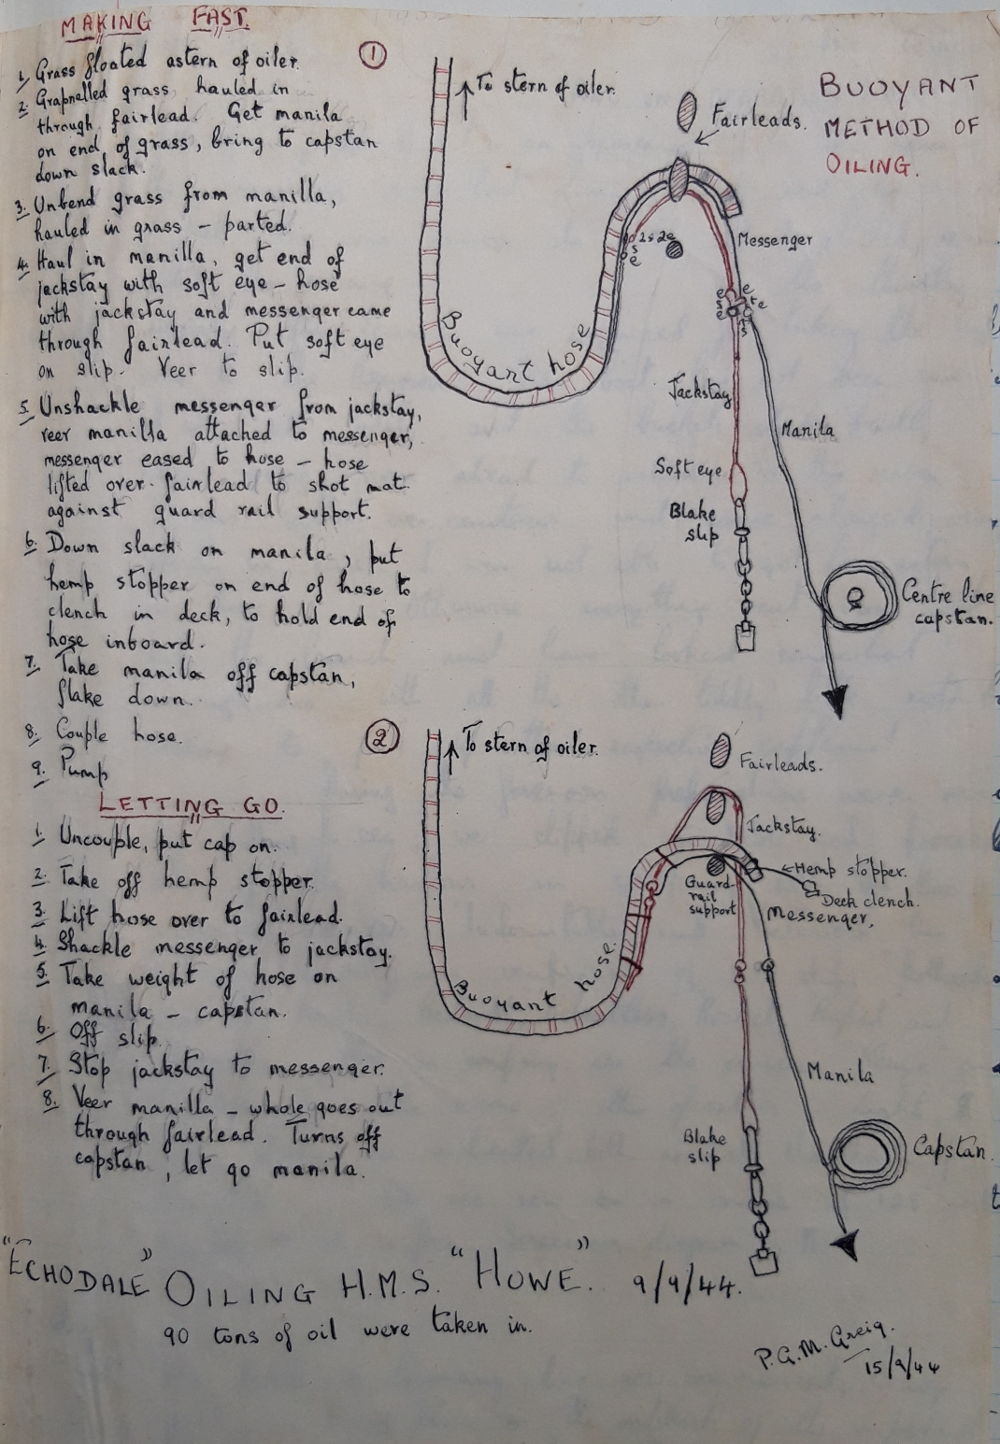 MAKING FAST.
1, Grass floated astern of oiler.
2. Grapnelled grass hauled in
through fairlead. Get manila
on end of grass, bring to capstan
down slack.
3. Unbend grass from manilla,
hauled in grass - parted.
4. Haul in manilla, get end of
jackstay with soft eye - hose
with jackstay and messenger came
through fairlead. Put soft eye
on slip. Veer to slip.
5. Unshackle messenger from jackstay,
veer manilla attached to messenger,
messenger eased to hose - hose
lifted over fairlead to shot mat
against guard rail support.
6. Down slack on manilla, put
hemp stopper on end of hose to
clench in deck, to hold end of
hose inboard.
7. Take manila off capstan,
flake down.
8. Couple hose.
9. Pump
LETTING GO.
1. Uncouple, put cap on.
2. Take off hemp stopper.
3. Lift hose over to fairlead.
4. Shackle messenger to jackstay.
5. Take weight of hose on
manila - capstan.
6. Off slip.
7. Stop jackstay to messenger.
8. Veer manilla - whole goes out
through fairlead. Turns off
capstan, let go manila.
1
To stern of oiler.
Fairleads.
BUOYANT
METHOD OF
OILING.
Messenger
Buoyant hose
Jackstay
Manila
Soft eye
Blake
slip
Centre line
capstan.
2
To stern of oiler.
Fairleads.
Jackstay.
Hemp stopper.
Guard
rail
support
Deck clench.
Messenger,
Buoyant hose
Manila
Blake
slip
Capstan.
"ECHODALE" OILING H.M.S. "HOWE". 9/9/44.
90 tons of oil were taken in.
P.G.M. Greig.
15/9/44